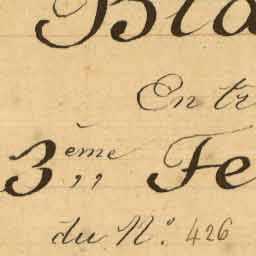 Bla
En tr
3ème Fe
du N.° 426